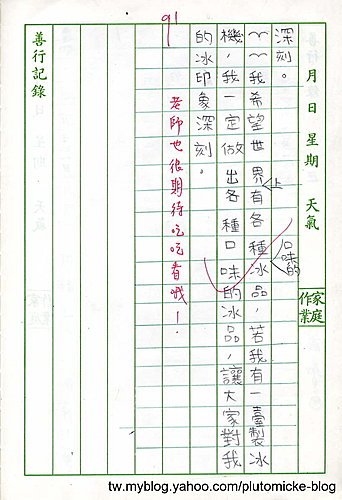 月 日 星期 天氣
家庭作業
深刻。
我希望世界上有各種口味的冰品,若我有一臺製冰
機,我一定做出各種口味的冰品,讓大家對我
的冰印象深刻。
91
老師也很期待吃吃看哦!
善行記錄
tw.myblog.yahoo.com/plutomicke-blog